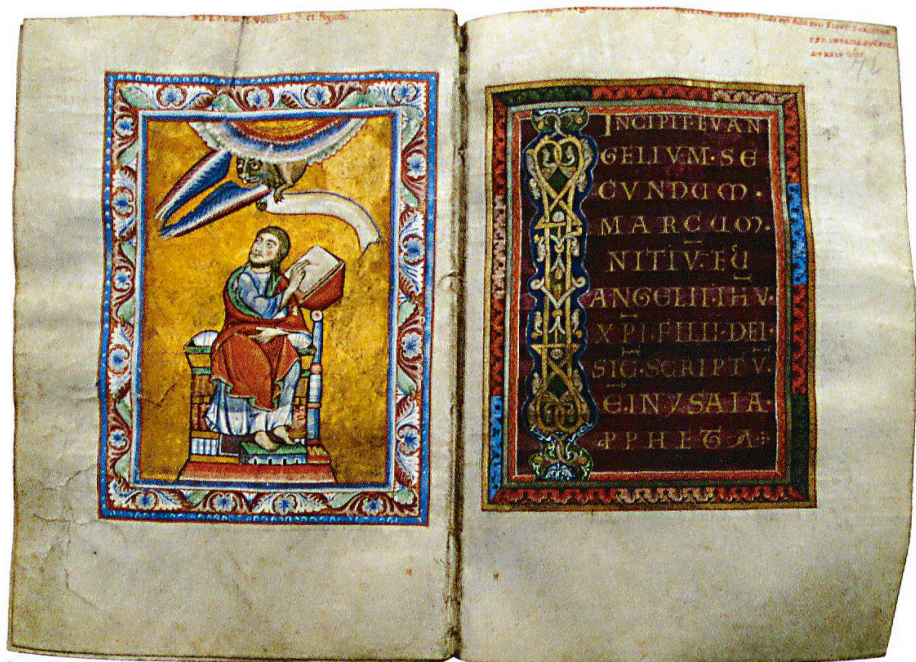 INCIPIT EVAN
GELIUM·SE
CUNDUM·
MARCUM·
NITIV. EU
ANGELII·IHV·
XPI·FILII·DEI·
SIC·SCRIPTV·
E·IN YSAIA·
PPHETA